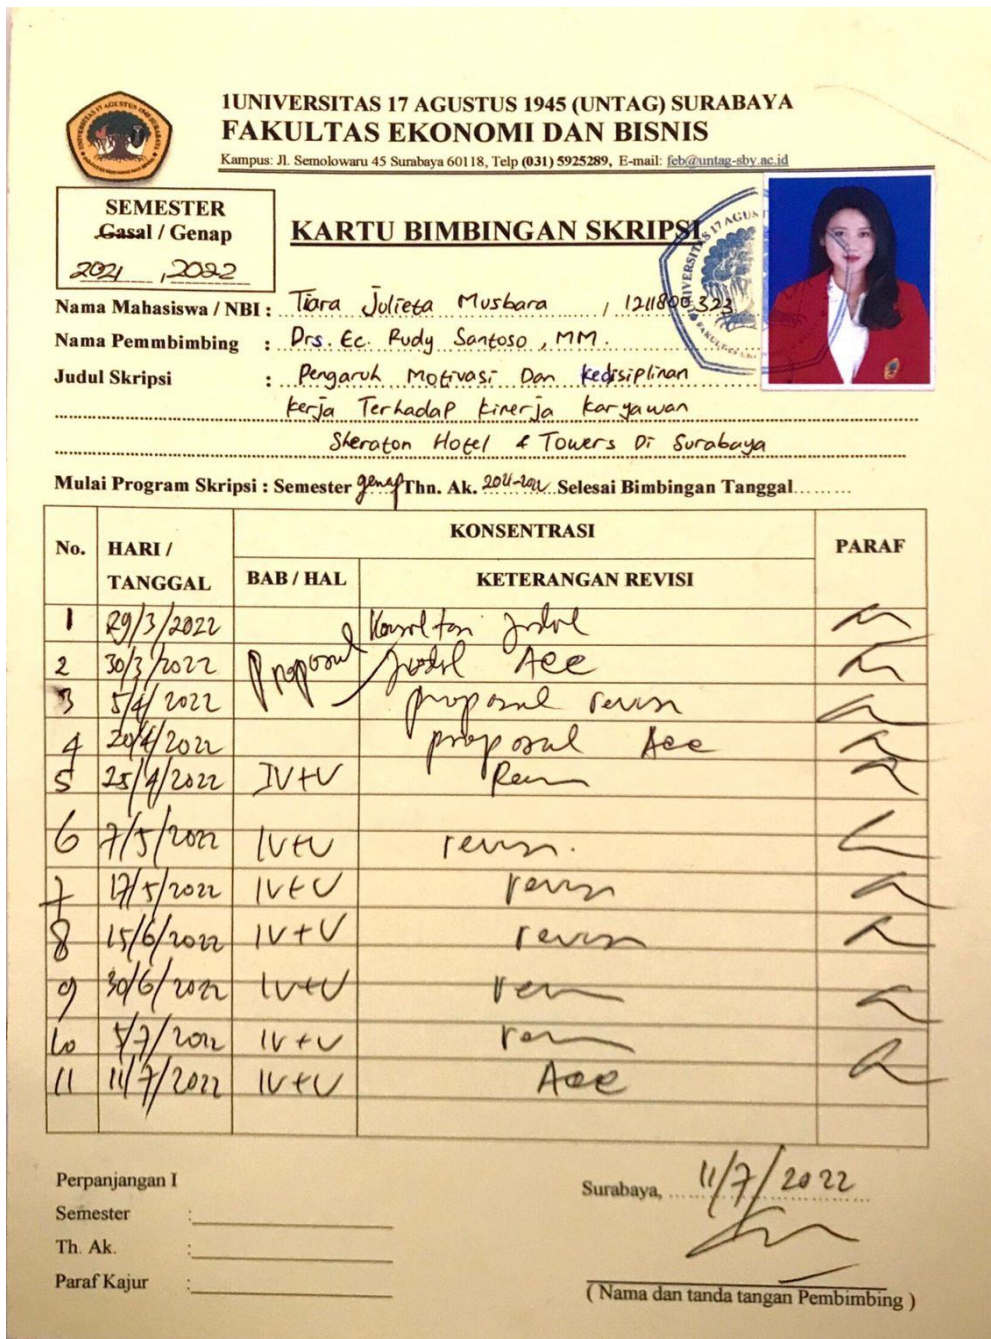 1UNIVERSITAS 17 AGUSTUS 1945 (UNTAG) SURABAYA
FAKULTAS EKONOMI DAN BISNIS
Kampus: Jl. Semolowaru 45 Surabaya 60118, Telp (031) 5925289, E-mail: feb@untag-sby.ac.id
SEMESTER
Gasal / Genap
2021 , 2022
KARTU BIMBINGAN SKRIPSI
Nama Mahasiswa / NBI : Tiara Julieta Musbara / 1211800323
Nama Pemmbimbing : Drs. Ec. Rudy Santoso , MM.
Judul Skripsi : Pengaruh Motivasi Dan Kedisiplinan
Kerja Terhadap Kinerja Karyawan
Sheraton Hotel & Towers Di Surabaya
Mulai Program Skripsi : Semester genap Thn. Ak. 2021-2022 Selesai Bimbingan Tanggal.........
No. HARI / TANGGAL KONSENTRASI PARAF
BAB / HAL KETERANGAN REVISI
1 29/3/2022 Konsultasi Judul
2 30/3/2022 Proposal Judul Acc
3 5/4/2022 proposal revisi
4 20/4/2022 proposal Acc
5 25/4/2022 IV+V Revisi
6 7/5/2022 IV+V revisi.
7 17/5/2022 IV+V revisi
8 15/6/2022 IV+V revisi
9 30/6/2022 IV+V revisi
10 5/7/2022 IV+V revisi
11 11/7/2022 IV+V Acc
Perpanjangan I
Semester :
Th. Ak. :
Paraf Kajur :
Surabaya, 11/7/2022
( Nama dan tanda tangan Pembimbing )